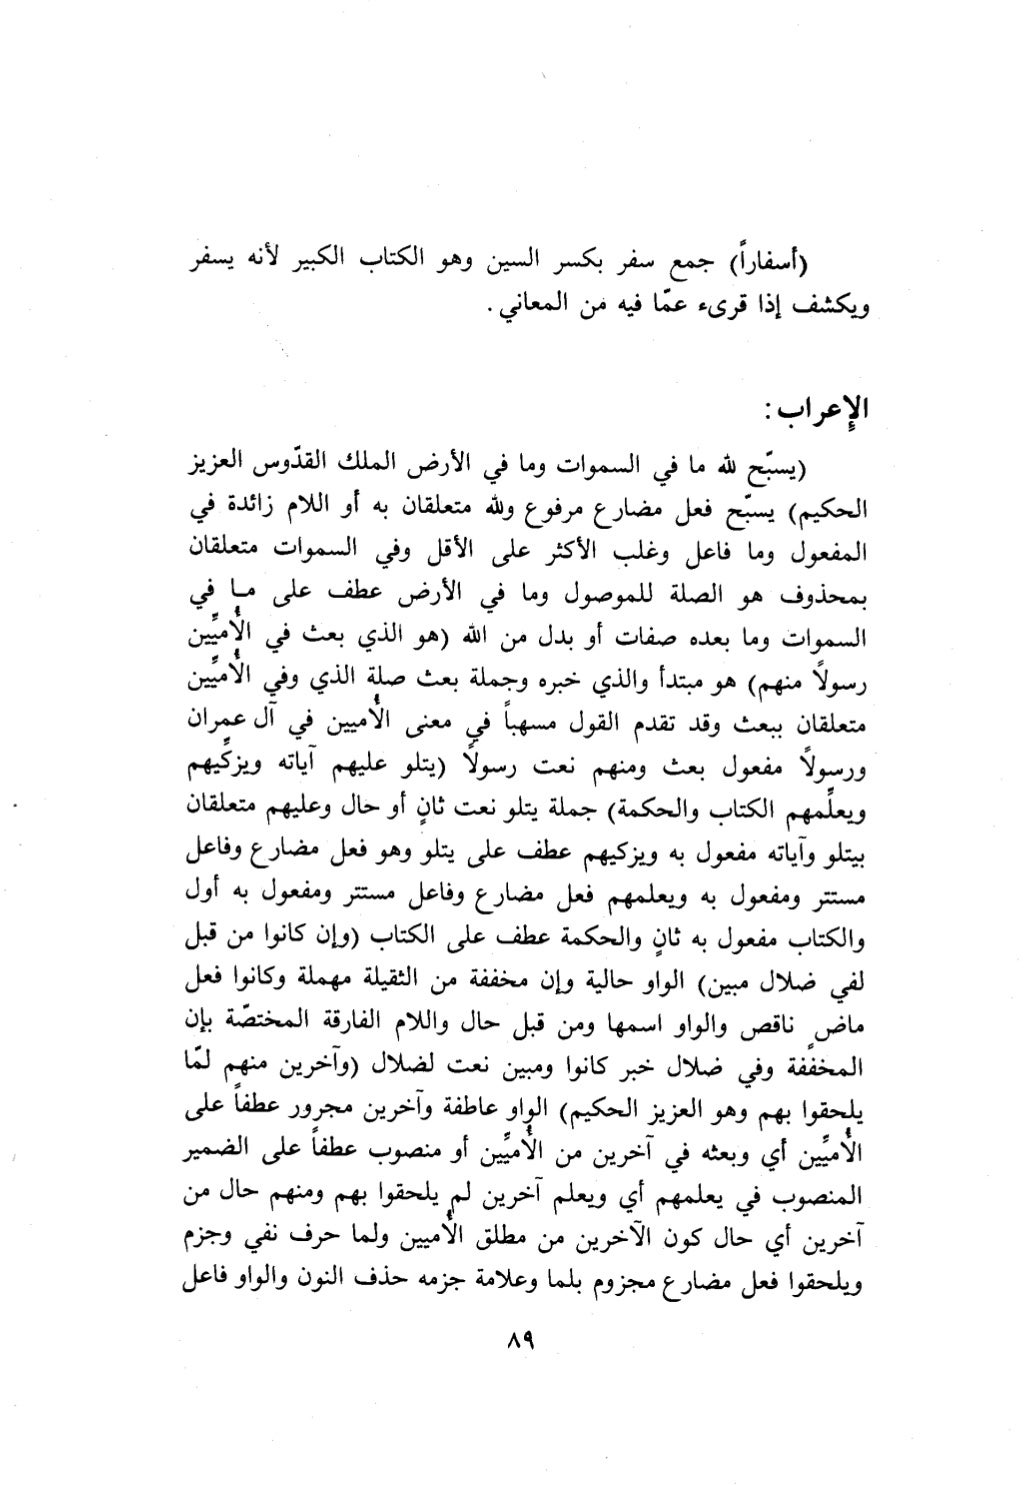 (أسفاراً) جمع سفر بكسر السين وهو الكتاب الكبير لأنه يسفر
ويكشف إذا قرىء عمّا فيه من المعاني .
الإعراب :
(يسبّح لله ما في السموات وما في الأرض الملك القدّوس العزيز
الحكيم) يسبّح فعل مضارع مرفوع ولله متعلقان به أو اللام زائدة في
المفعول وما فاعل وغلب الأكثر على الأقل وفي السموات متعلقان
بمحذوف هو الصلة للموصول وما في الأرض عطف على ما في
السموات وما بعده صفات أو بدل من الله (هو الذي بعث في الأُميِّين
رسولاً منهم) هو مبتدأ والذي خبره وجملة بعث صلة الذي وفي الأُميِّين
متعلقان ببعث وقد تقدم القول مسهباً في معنى الأُميين في آل عمران
ورسولاً مفعول بعث ومنهم نعت رسولاً (يتلو عليهم آياته ويزكِّيهم
ويعلِّمهم الكتاب والحكمة) جملة يتلو نعت ثانٍ أو حال وعليهم متعلقان
بيتلو وآياته مفعول به ويزكيهم عطف على يتلو وهو فعل مضارع وفاعل
مستتر ومفعول به ويعلمهم فعل مضارع وفاعل مستتر ومفعول به أول
والكتاب مفعول به ثانٍ والحكمة عطف على الكتاب (وإن كانوا من قبل
لفي ضلال مبين) الواو حالية وإن مخففة من الثقيلة مهملة وكانوا فعل
ماضٍ ناقص والواو اسمها ومن قبل حال واللام الفارقة المختصّة بإن
المخففة وفي ضلال خبر كانوا ومبين نعت لضلال (وآخرين منهم لمّا
يلحقوا بهم وهو العزيز الحكيم) الواو عاطفة وآخرين مجرور عطفاً على
الأُميِّين أي وبعثه في آخرين من الأُميِّين أو منصوب عطفاً على الضمير
المنصوب في يعلمهم أي ويعلم آخرين لم يلحقوا بهم ومنهم حال من
آخرين أي حال كون الآخرين من مطلق الأُميين ولما حرف نفي وجزم
ويلحقوا فعل مضارع مجزوم بلما وعلامة جزمه حذف النون والواو فاعل
٨٩